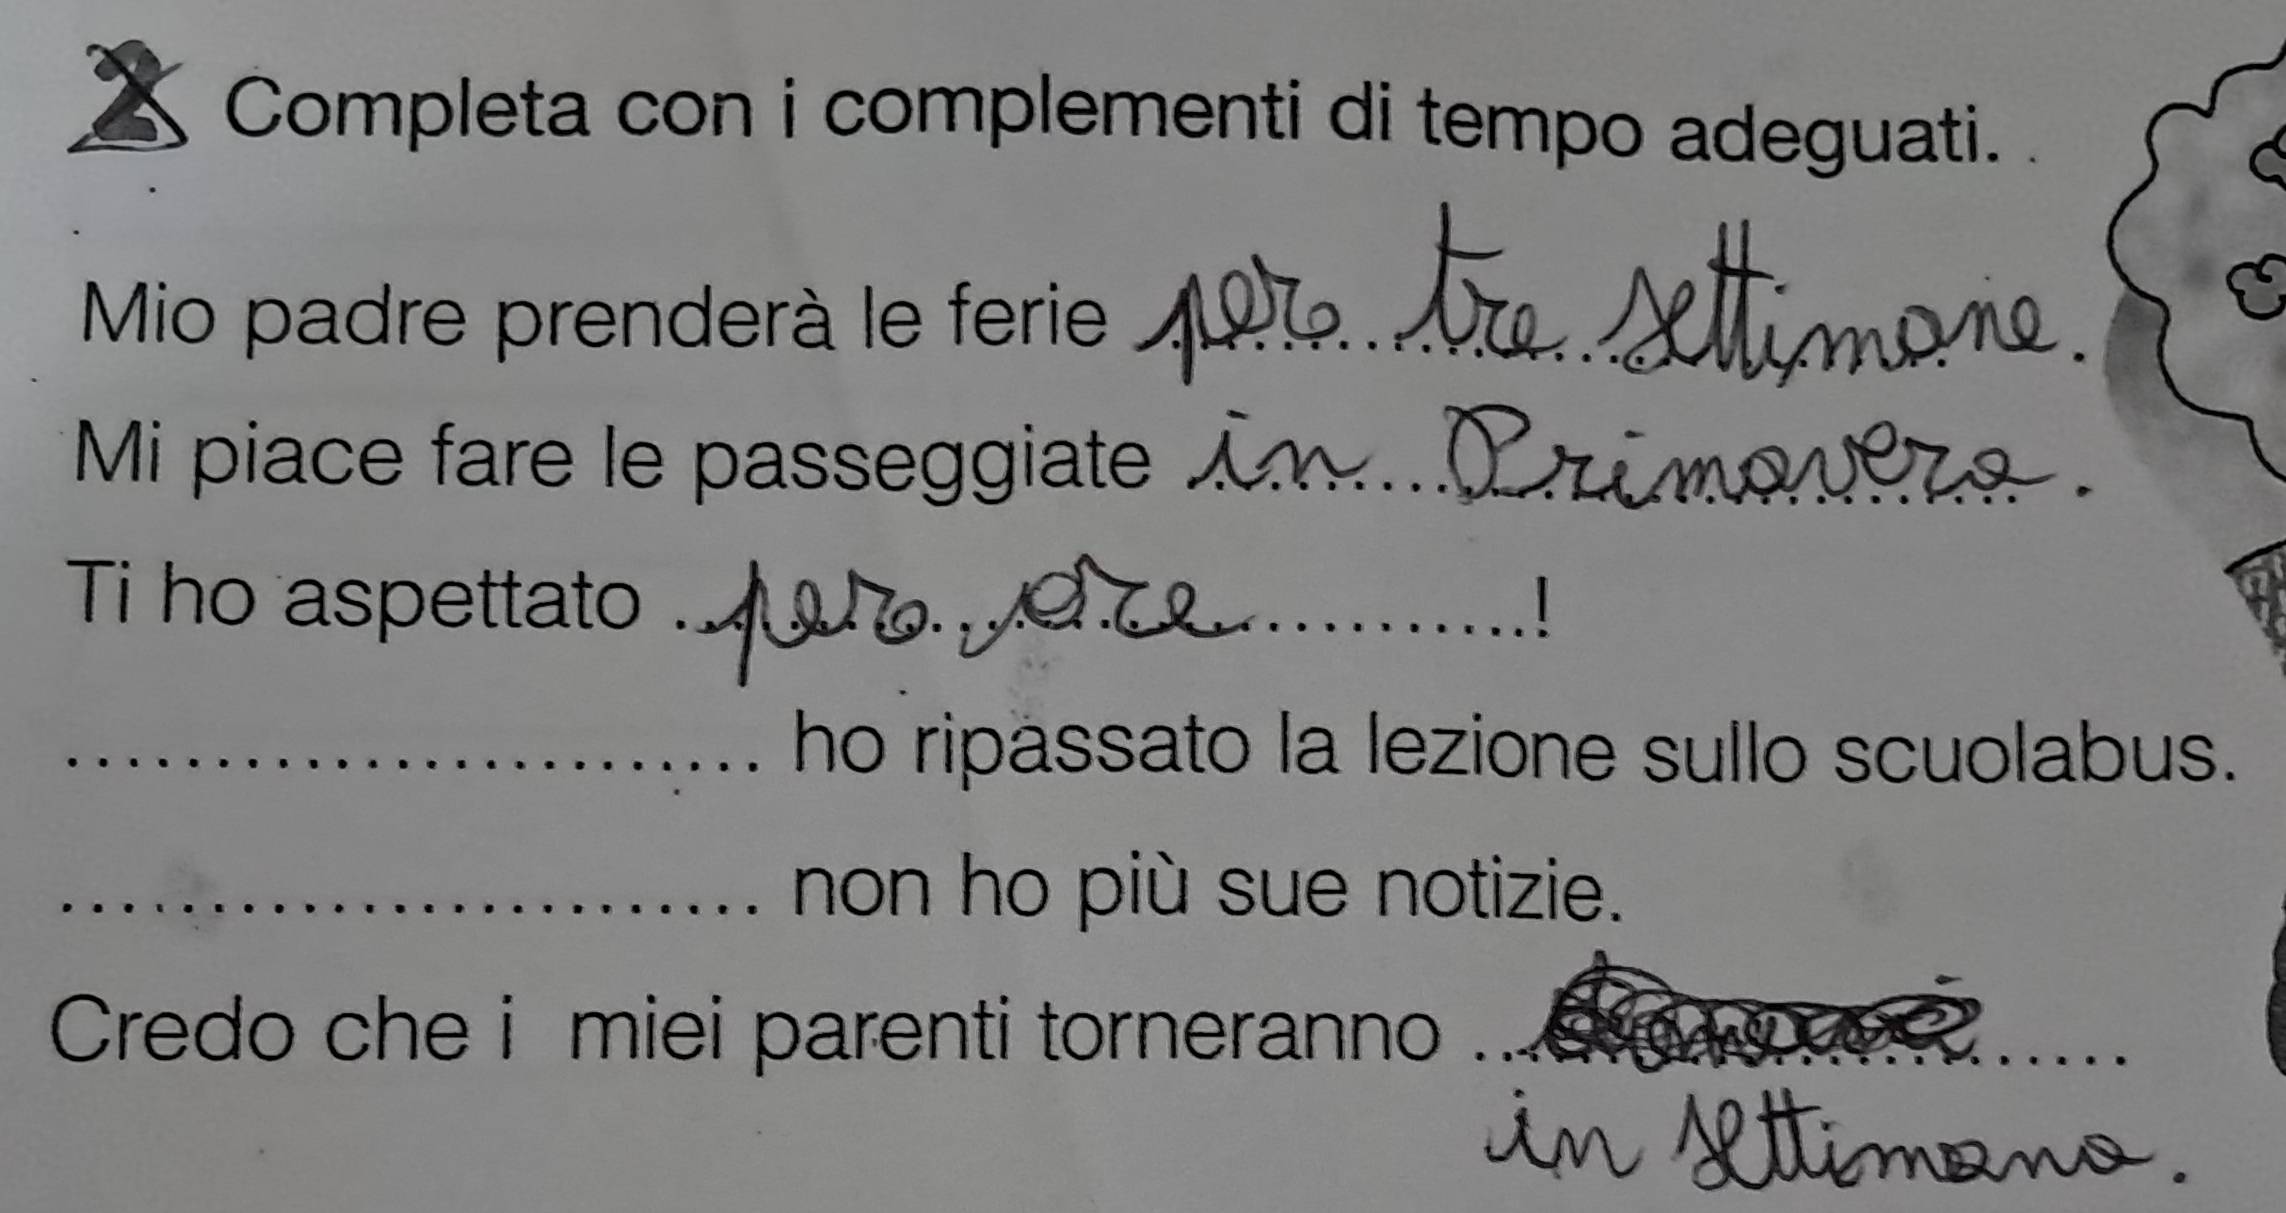 2 Completa con i complementi di tempo adeguati.
Mio padre prenderà le ferie per tre settimane.
Mi piace fare le passeggiate in Primavera.
Ti ho aspettato per ore !
ho ripassato la lezione sullo scuolabus.
non ho più sue notizie.
Credo che i miei parenti torneranno
in settimana.